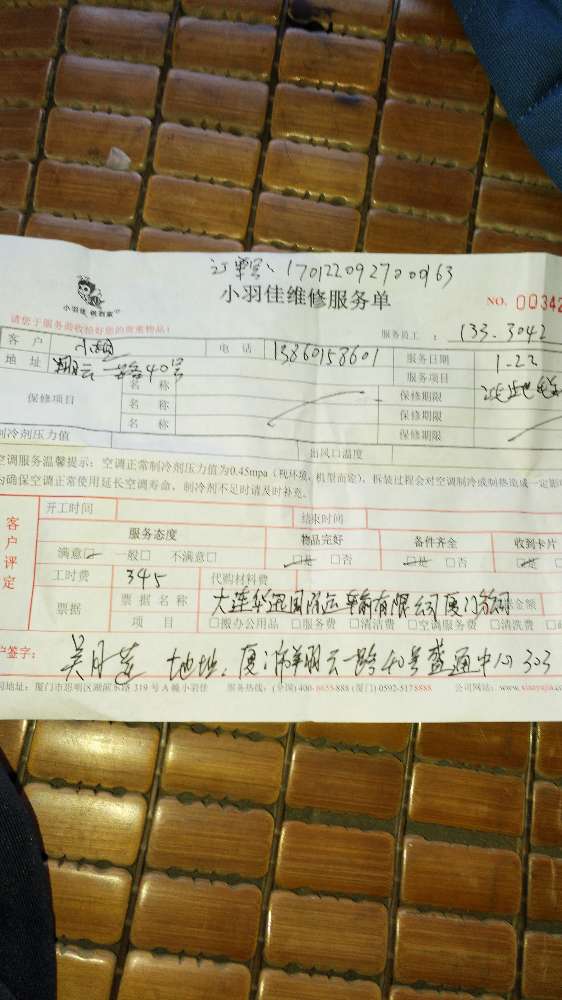 订单号：170122092700963
小羽佳维修服务单
小羽佳 NO. 00342
请您于服务前收拾好您的贵重物品！
服务员工：133.3042
客户 小姐 电话 13860158601 服务日期 1-22
地址 翔云一路40号 服务项目
保修项目 名称 保修期限
名称 保修期限
名称 保修期限
制冷剂压力值 出风口温度
空调服务温馨提示：空调正常制冷剂压力值为0.45mpa（视环境、机型而定），拆装过程会对空调制冷或制热造成一定影
为确保空调正常使用延长空调寿命，制冷剂不足时请及时补充。
客户评定
开工时间 结束时间
服务态度 物品完好 备件齐全 收到卡片
满意☑ 一般□ 不满意□ ☑是 □否 ☑是 □否 ☑是 □
工时费 345 代购材料费
票据 票据名称 大连华迅国际运输有限公司厦门分公司 金额
项目 □搬办公用品 □服务费 □清洁费 □空调服务费 □清洗费
户签字： 吴月莲 地址：厦门市翔云一路40号盛通中心303
司地址：厦门市思明区湖滨东路319号A栋小羽佳 服务热线：(全国)400-8855-888 (厦门) 0592-5178888 公司网站：www.xiaoyujia.co